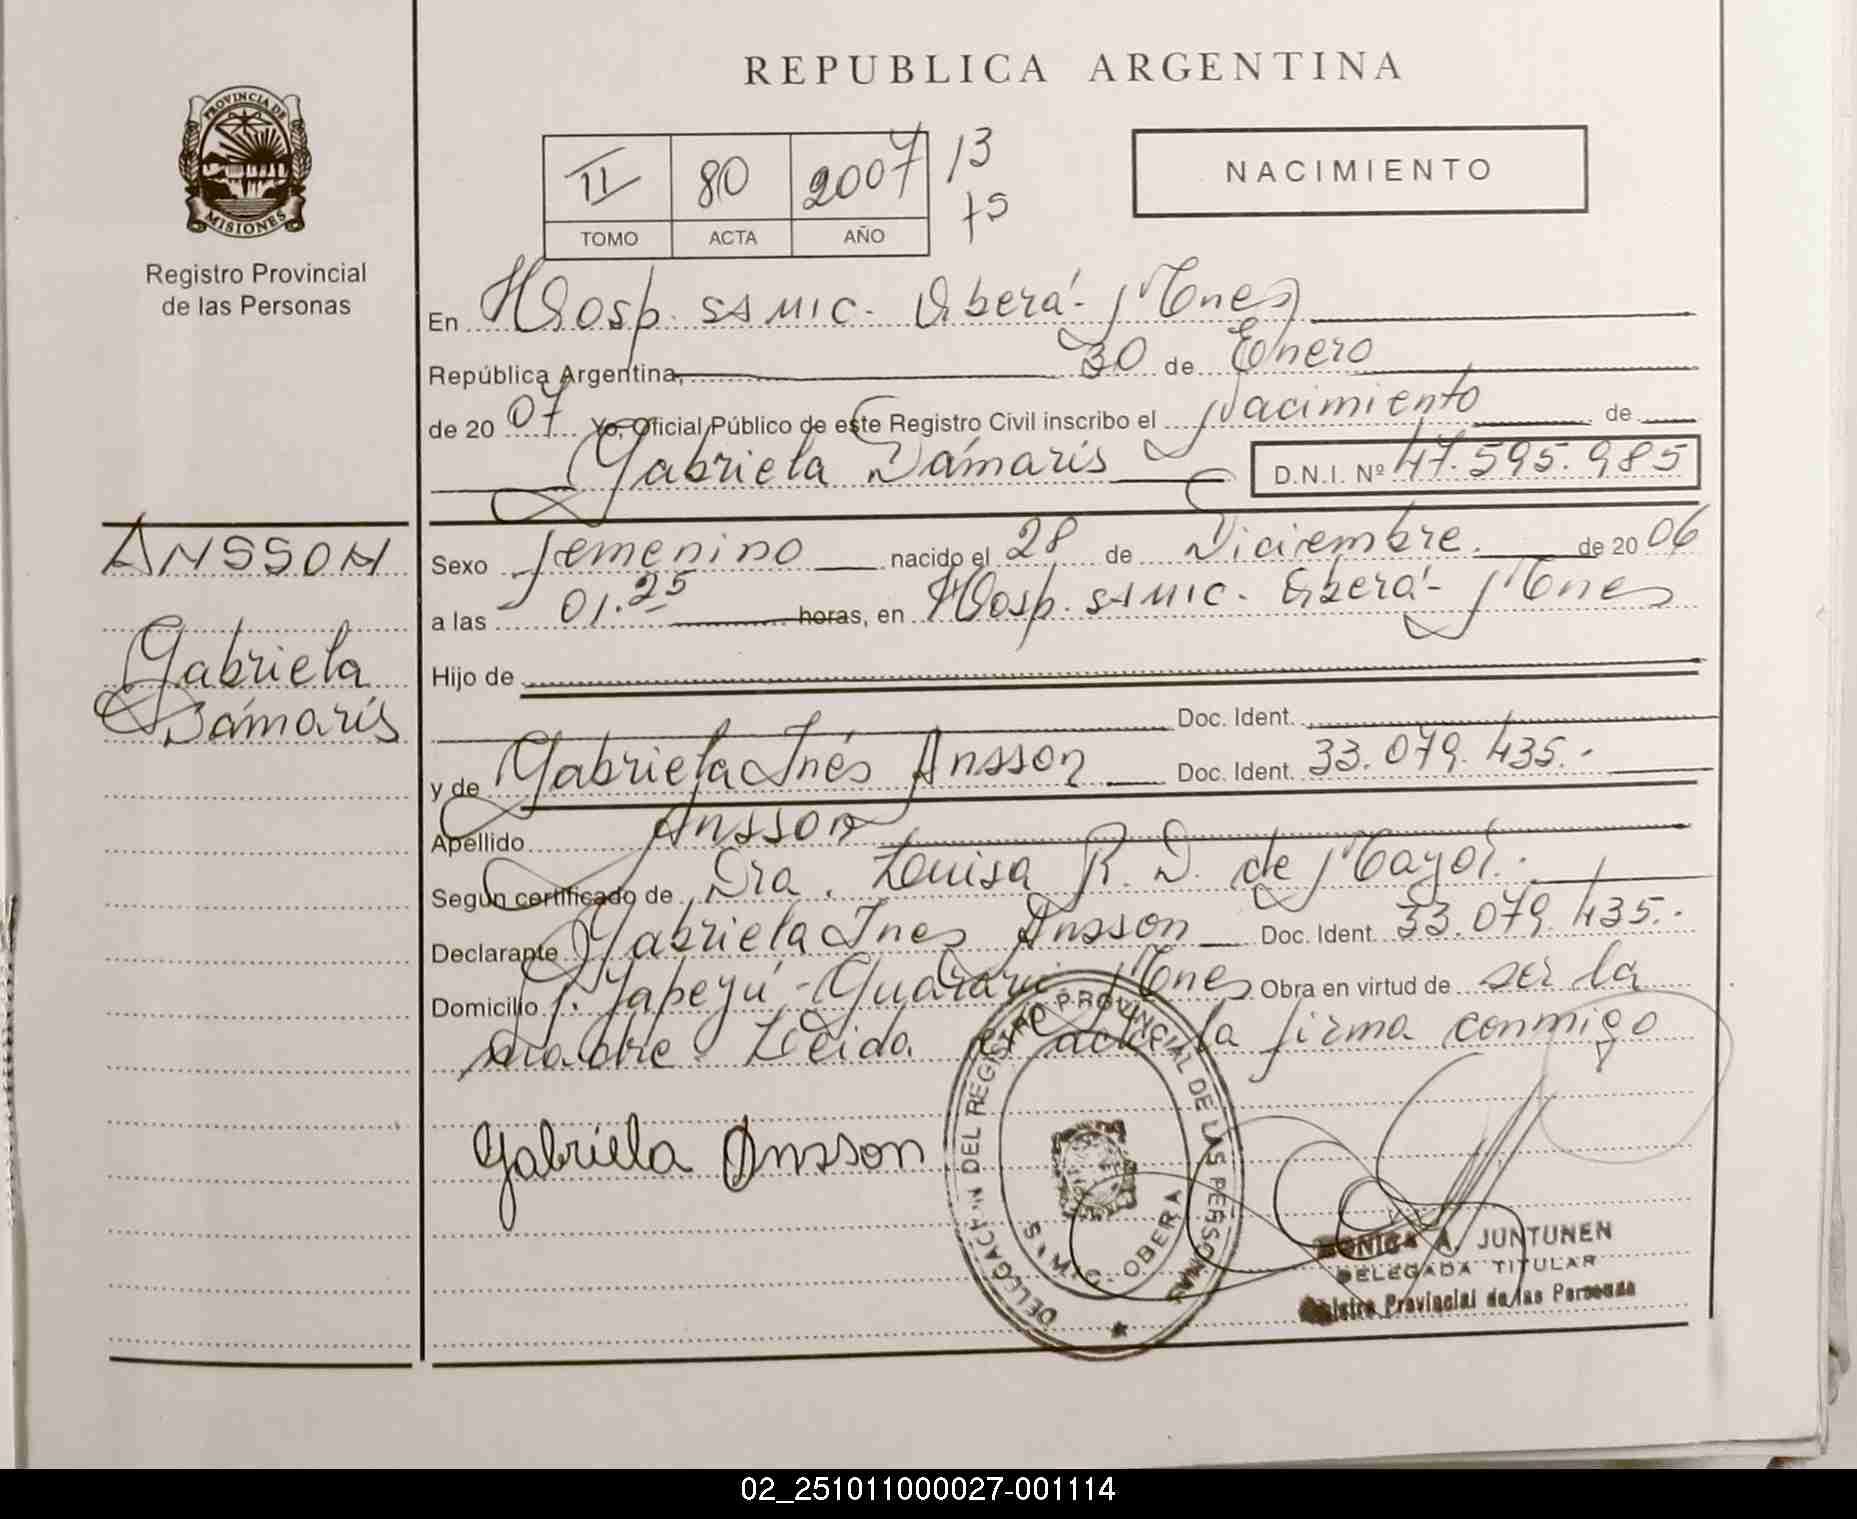 REPUBLICA ARGENTINA
PROVINCIA DE
MISIONES
Registro Provincial
de las Personas
II 80 2007 13
75
TOMO ACTA AÑO
NACIMIENTO
En Hosp. SAMIC. Oberá - Mnes
República Argentina, 30 de Enero
de 20 07 Yo, Oficial Público de este Registro Civil inscribo el Nacimiento de
Gabriela Dámaris D.N.I. Nº 47.595.985
ANSSON
Gabriela
Dámaris
Sexo femenino nacido el 28 de Diciembre. de 20 06
a las 01.25 horas, en Hosp. SAMIC. Oberá - Mnes
Hijo de
Doc. Ident.
y de Gabriela Inés Ansson Doc. Ident. 33.079.435.-
Apellido Ansson
Según certificado de Dra. Luisa R. D. de Mayol.
Declarante Gabriela Ines Ansson Doc. Ident. 33.079.435.-
Domicilio Yapeyú - Guaraní Mnes Obra en virtud de ser la
madre. Leída el acta la firma conmigo
Gabriela Ansson
DELEGACION DEL REGISTRO PROVINCIAL DE LAS PERSONAS
S.A.M.I.C. OBERA
MONICA A. JUNTUNEN
DELEGADA TITULAR
Registro Provincial de las Personas
02_251011000027-001114